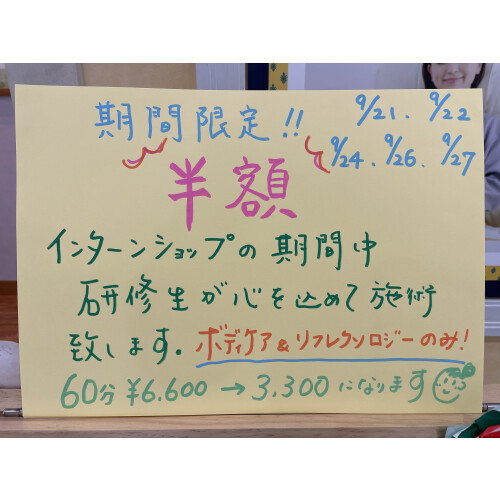 期間限定!!
9/21. 9/22
9/24. 9/26. 9/27
半額
インターンショップの期間中
研修生が心を込めて施術
致します。ボディケア&リフレクソロジーのみ!
60分¥6.600→3.300になります